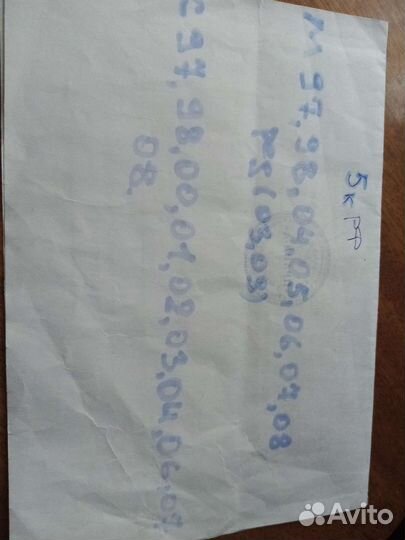 5к рф
М 97, 98, 04, 05, 06, 07, 08
РZ (03,08)
С 97, 98, 00, 01, 02, 03, 04, 06, 07,
08.
Avito